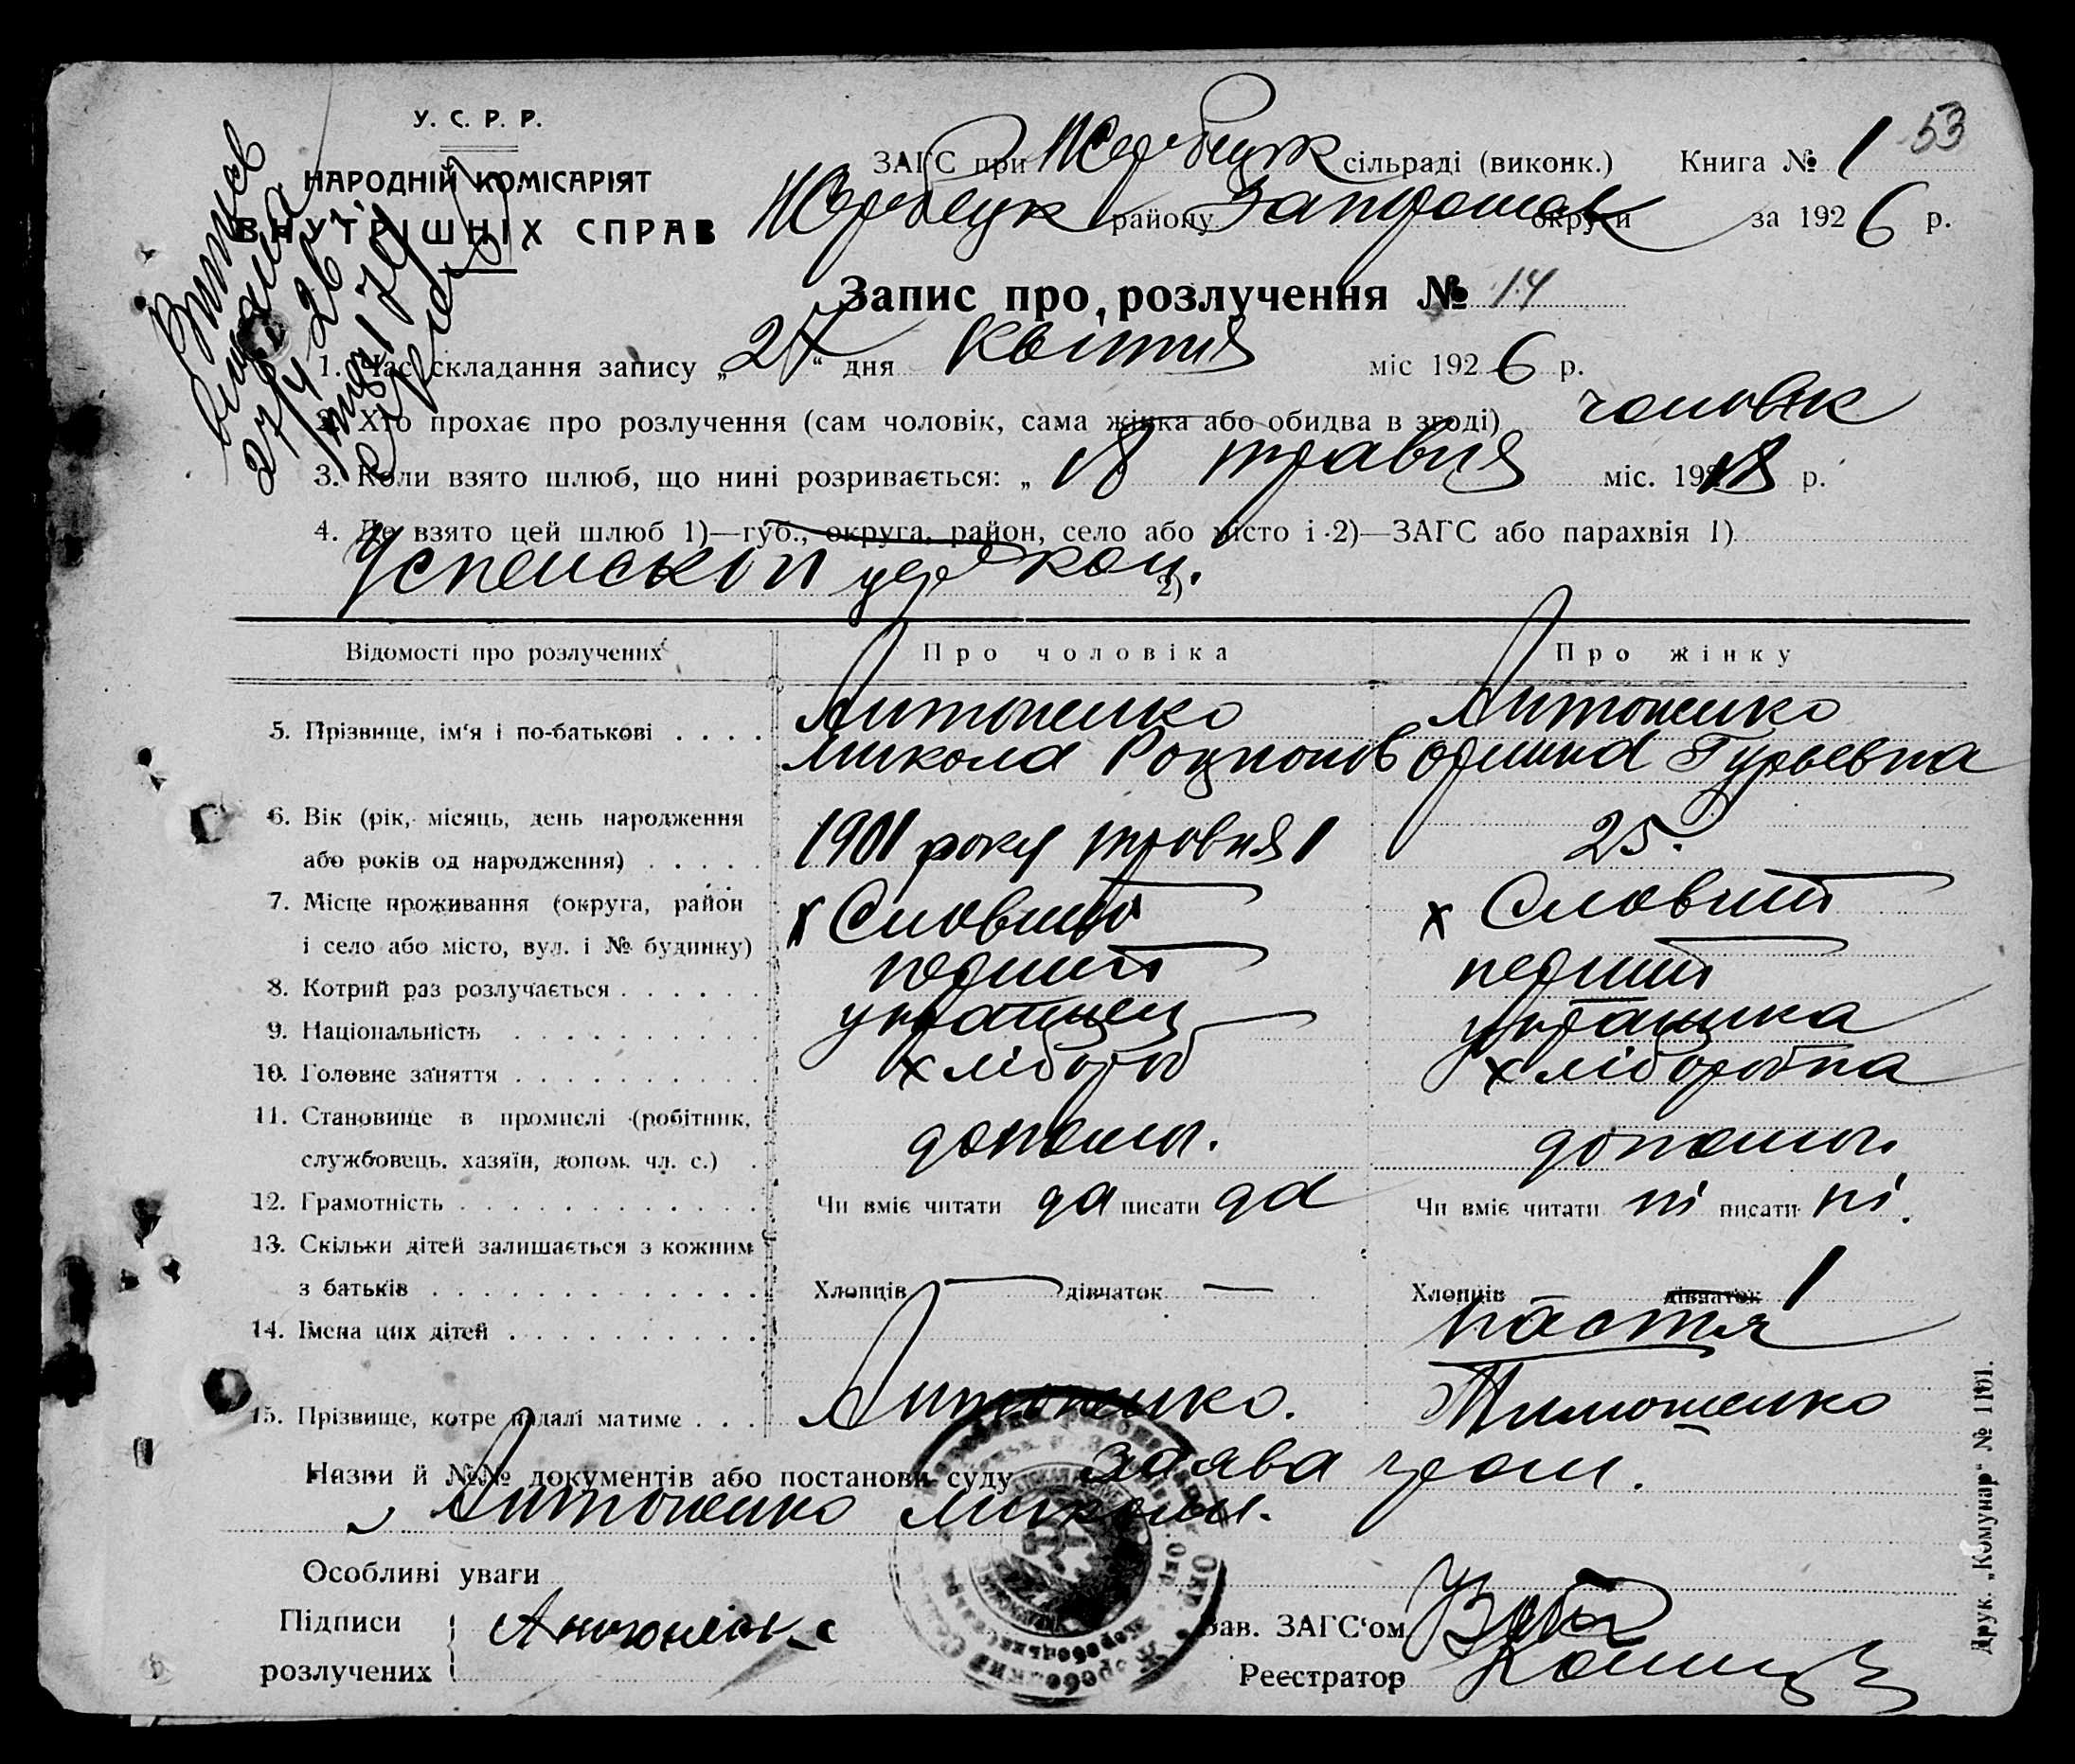 53
У. С. Р. Р.
НАРОДНІЙ КОМІСАРІЯТ
ВНУТРІШНІХ СПРАВ
Витис
видана
27/4 26 г.
ЗАГС при Жеребецк сільраді (виконк.) Книга № 1
Жеребецк району Запорошск округи за 1926 р.
Запис про розлучення № 14
1. Час складання запису „27“ дня Квітня міс 1926 р.
2. Хто прохає про розлучення (сам чоловік, сама жінка або обидва в згоді) чоловік
3. Коли взято шлюб, що нині розривається: „ 18 травня міс. 1918 р.
4. Де взято цей шлюб 1)—губ., округа, район, село або місто і 2)—ЗАГС або парахвія 1)
Успенской церкви. 2)
Відомості про розлучених Про чоловіка Про жінку
5. Прізвище, ім‘я і по-батькові . . . . Антоненко Антоненко
Микола Орина Гурьевна
6. Вік (рік, місяць, день народження
або років од народження) . . . . . 1901 року травня 1 25.
7. Місце проживання (округа, район
і село або місто, вул. і № будинку) х х
8. Котрий раз розлучається . . . . . . перший перший
9. Національність . . . . . . . . . . українец українка
10. Головне заняття . . . . . . . . . . хлібороб хліборобка
11. Становище в промислі (робітник,
службовець, хазяїн, допом. чл. с.) . допом. допом.
12. Грамотність . . . . . . . . . . . . Чи вміє читати да писати да Чи вміє читати ні писати ні.
13. Скільки дітей залишається з кожним
з батьків . . . . . . . . . . . . . . Хлопців — дівчаток — Хлопців дівчаток 1
14. Імена цих дітей . . . . . . . . . . Настя
15. Прізвище, котре надалі матиме . . . Антоненко. Тимошенко
Назви й №№ документів або постанови суду заява гром.
Антоненко Миколи.
Особливі уваги
Підписи
розлучених
Антоненко
Зав. ЗАГС‘ом
Реєстратор
Друк. „Комунар“ № 1101.